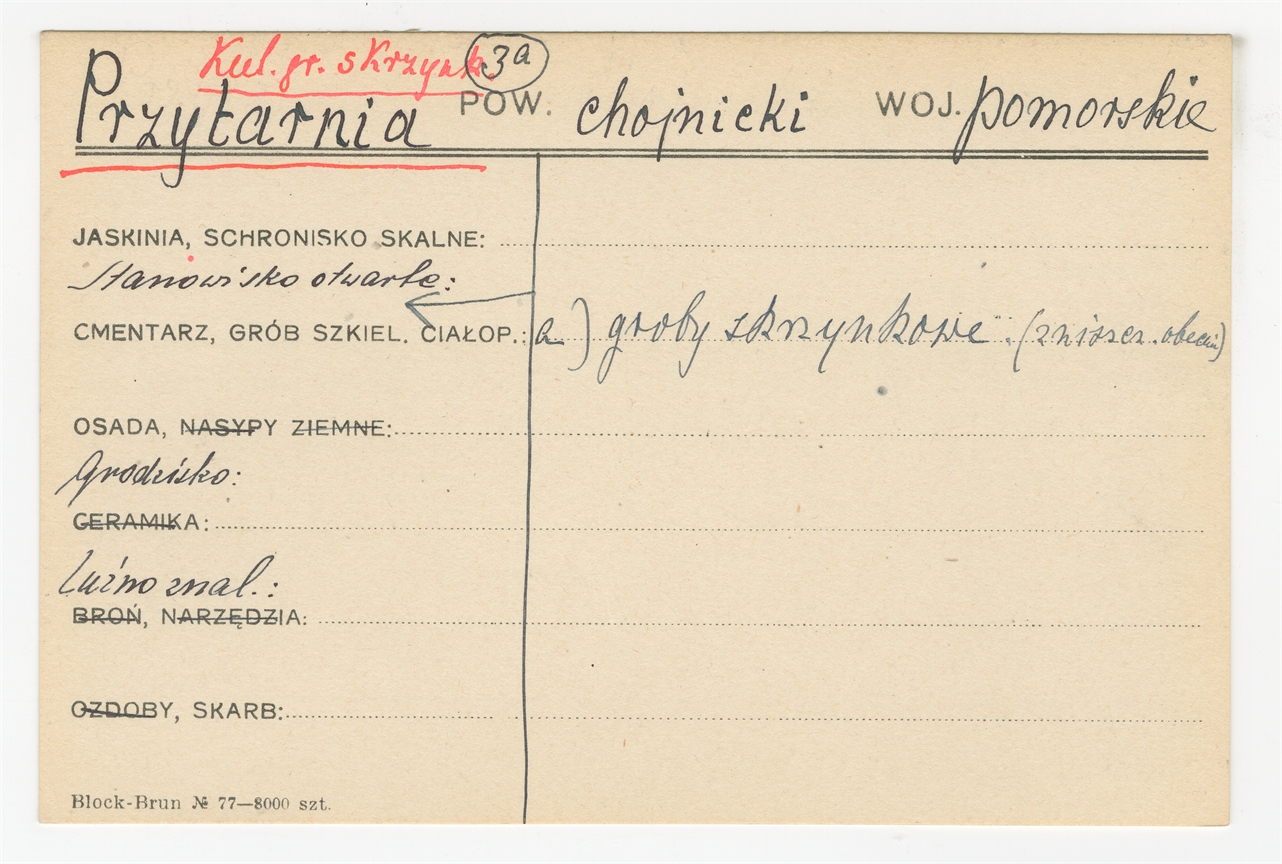 Kul. gr. skrzynk. 3a
Przytarnia POW. chojnicki WOJ. pomorskie
JASKINIA, SCHRONISKO SKALNE:
Stanowisko otwarte:
CMENTARZ, GRÓB SZKIEL. CIAŁOP.: a) groby skrzynkowe (zniszcz. obecnie)
OSADA, NASYPY ZIEMNE:
Grodzisko:
CERAMIKA:
Luźno znal.:
BROŃ, NARZĘDZIA:
OZDOBY, SKARB:
Block-Brun № 77—8000 szt.